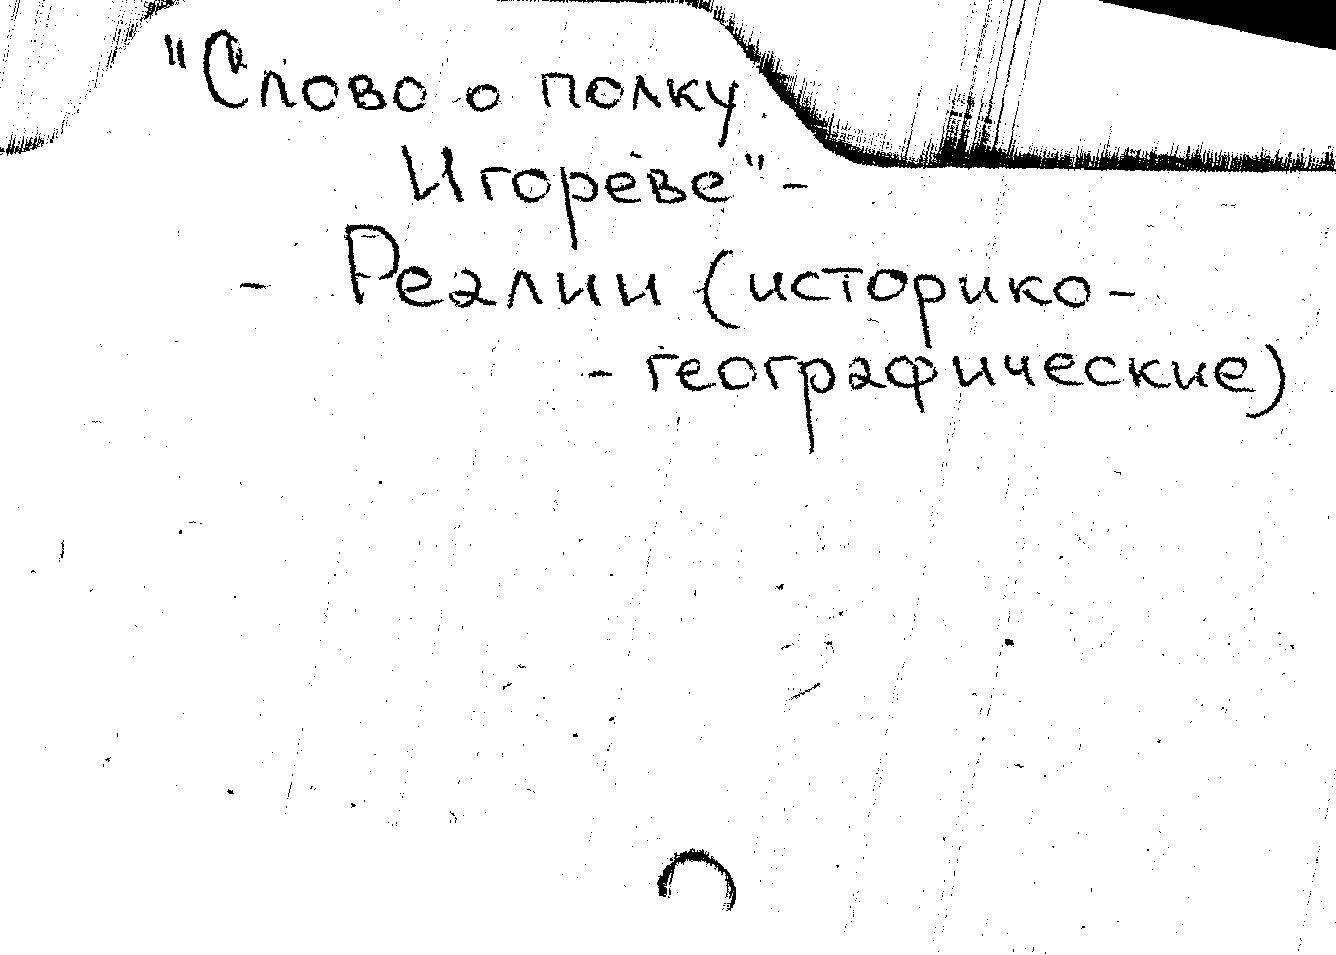 "Слово о полку
Игореве" -
- Реалии (историко-
- географические)